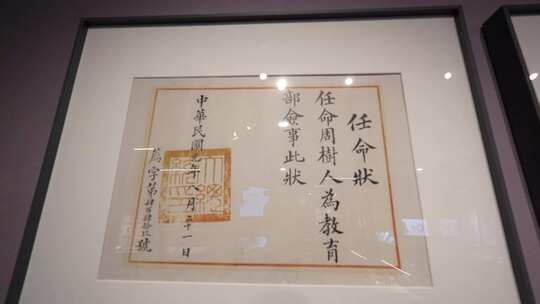 任命狀
任命周樹人為教育
部僉事此狀
中華民國元年八月二十一日